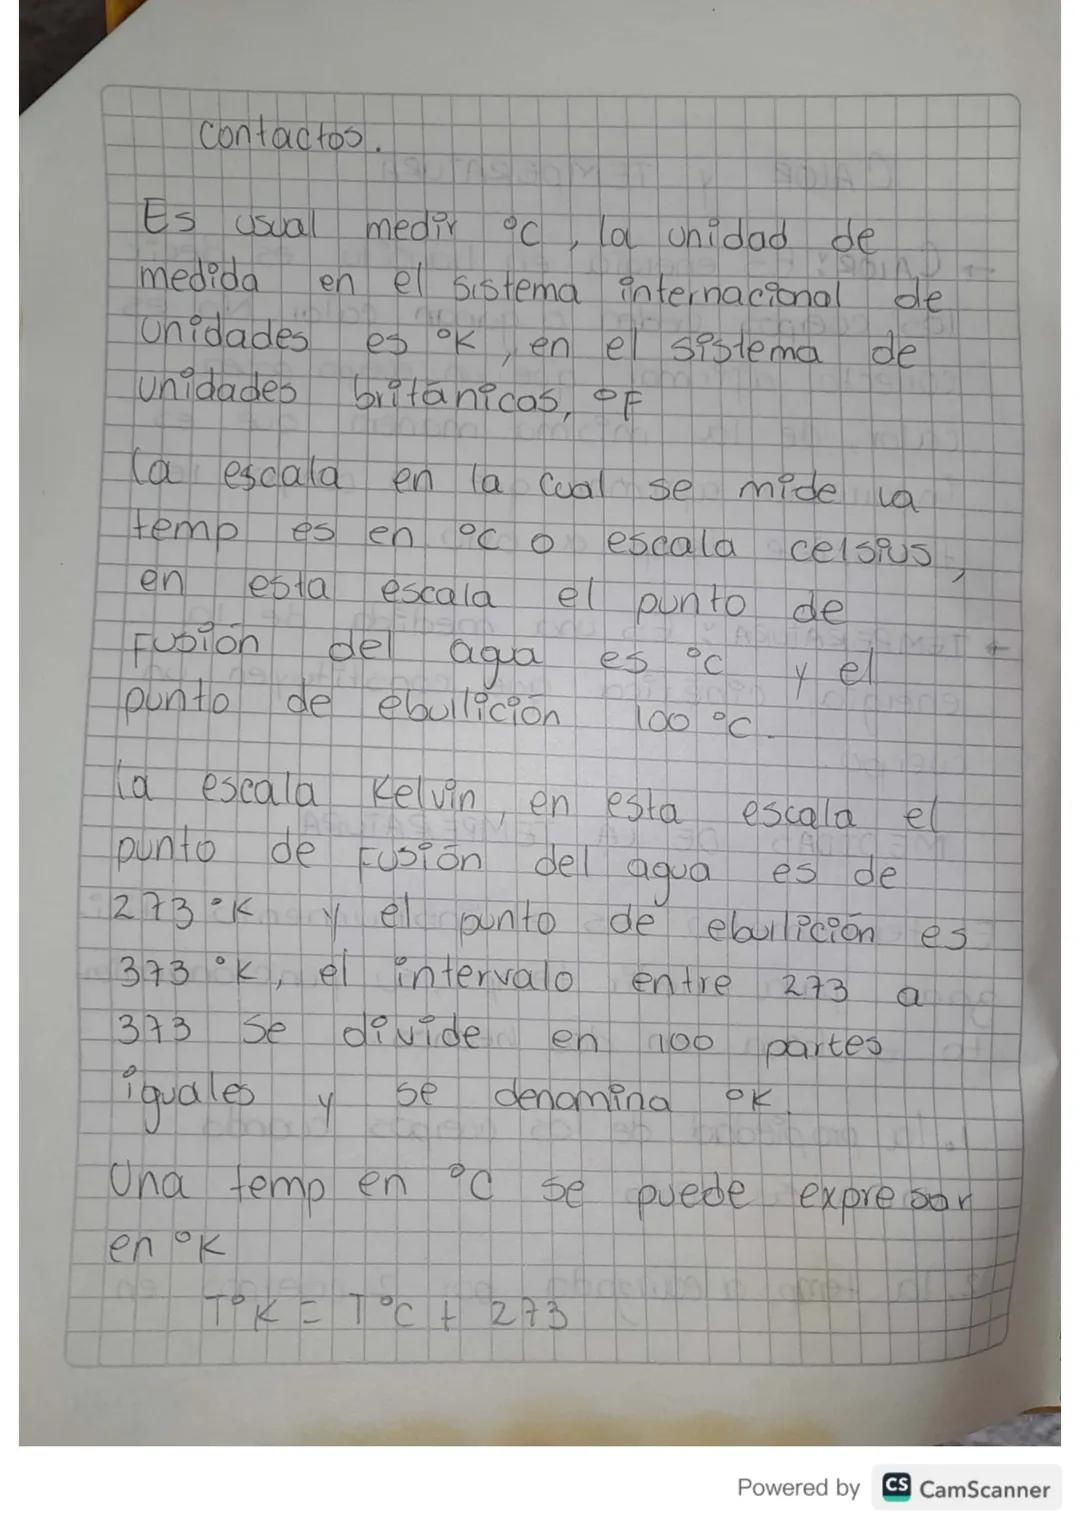 contactos.
Es usual medir °C, la unidad de
medida en el sistema internacional de
unidades es °K, en el sistema de
unidades británicas, °F
la escala en la cual se mide la
temp es en °C o escala celsius,
en esta escala el punto de
Fusión del agua es °C y el
punto de ebullición 100 °C.
la escala Kelvin, en esta escala el
punto de Fusión del agua es de
273 °K y el punto de ebullición es
373 °K, el intervalo entre 273 a
373 se divide en 100 partes
iguales y se denomina °K
Una temp en °C se puede expresar
en °K
T°K = T°C + 273
Powered by CS CamScanner